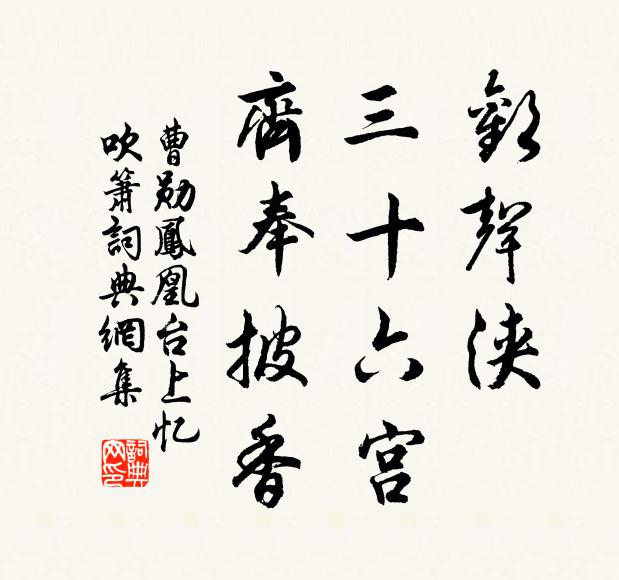 歡聲浹
三十六宮
齊奉披香
曹勛鳳凰台上忆
吹簫詞典網集
詞典
网印